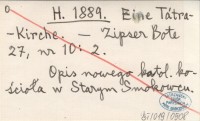 H. 1889. Eine Tátra-
-Kirche. — Zipser Bote
27, nr 10: 2.
Opis nowego katol. ko-
ścioła w Starym Smokowcu.